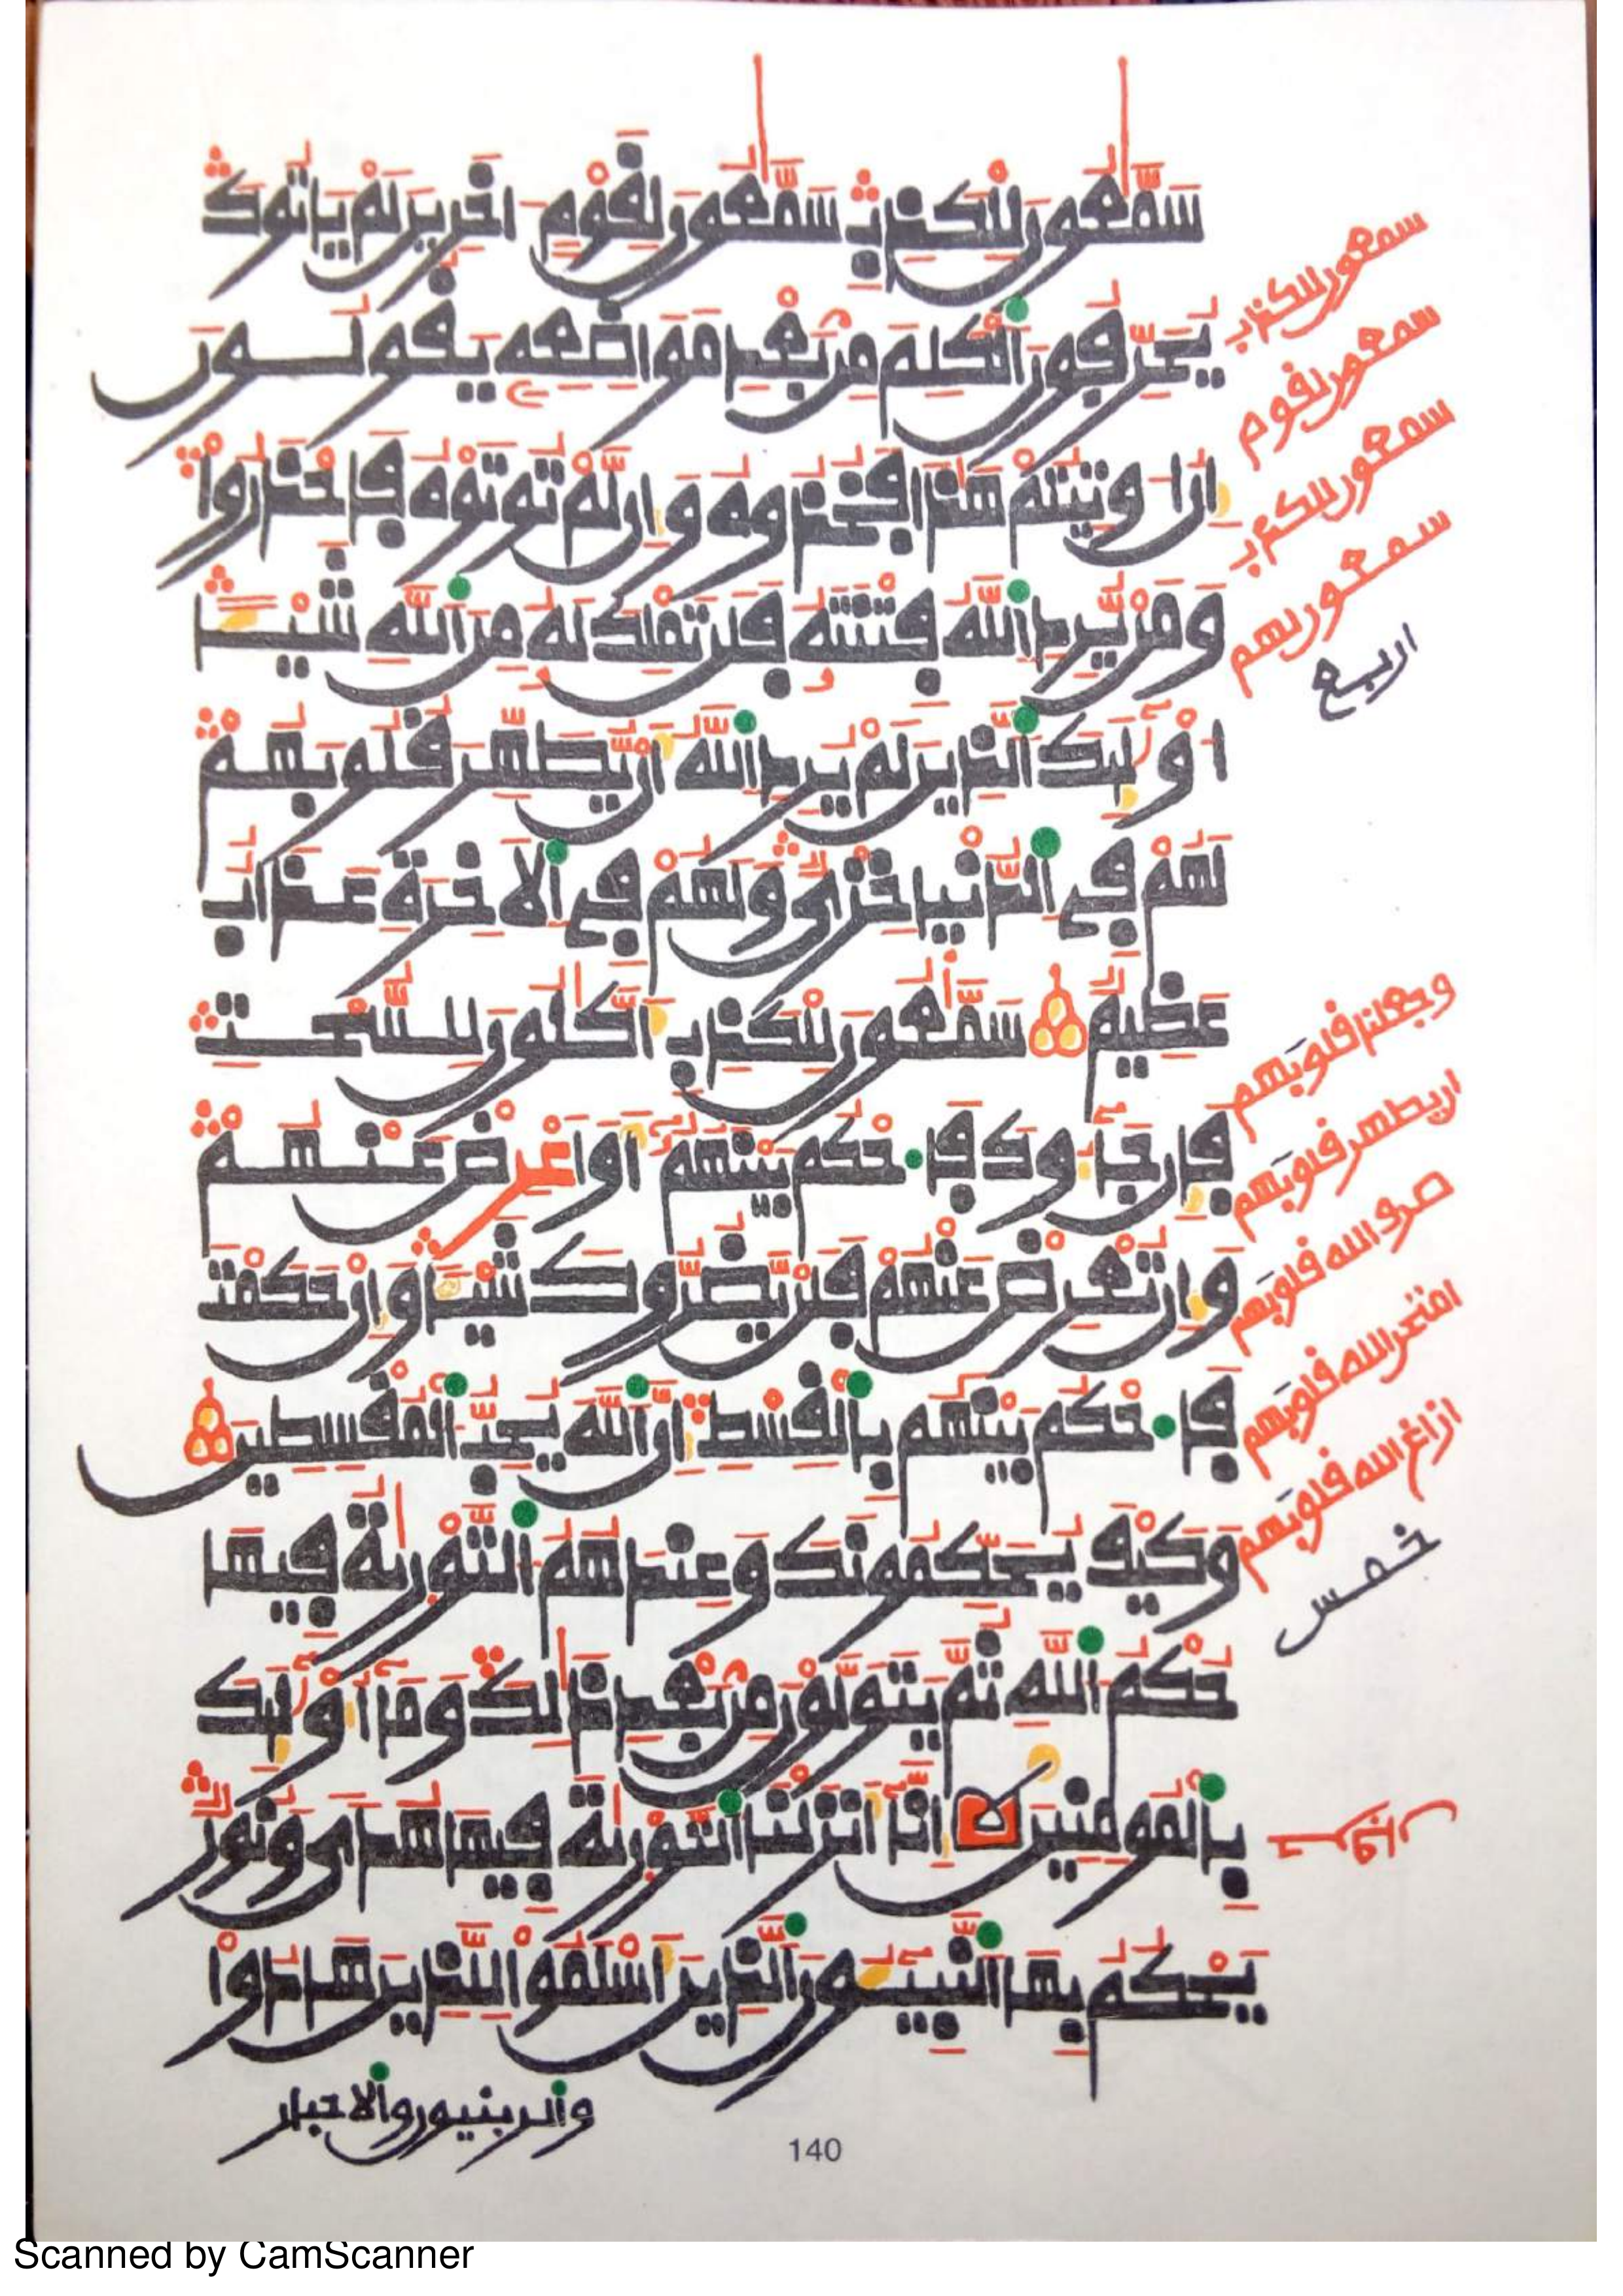 سَمَّٰعُونَ لِلْكَذِبِ سَمَّٰعُونَ لِقَوْمٍ اٰخَرِينَ لَمْ يَاتُوكَ
يُحَرِّفُونَ ٱلْكَلِمَ مِنۢ بَعْدِ مَوَاضِعِهِ يَقُولُونَ
إِنُ اوتِيتُمْ هَٰذَا فَخُذُوهُ وَإِن لَّمْ تُوتَوْهُ فَاحْذَرُواْ
وَمَنْ يُّرِدِ ٱللَّهُ فِتْنَتَهُ فَلَن تَمْلِكَ لَهُ مِنَ ٱللَّهِ شَيْـًٔا
اوْلَٰٓئِكَ ٱلَّذِينَ لَمْ يُرِدِ ٱللَّهُ أَنْ يُّطَهِّرَ قُلُوبَهُمْ
لَهُمْ فِي ٱلدُّنْيَا خِزْيٌ وَلَهُمْ فِي ٱلَاخِرَةِ عَذَابٌ
عَظِيمٌ سَمَّٰعُونَ لِلْكَذِبِ أَكَّٰلُونَ لِلسُّحْتِ
فَإِن جَآءُوكَ فَاحْكُم بَيْنَهُمُۥٓ أَوَ اعْرِضْ عَنْهُمْ
وَإِن تُعْرِضْ عَنْهُمْ فَلَنْ يَّضُرُّوكَ شَيْـًٔا وَإِنْ حَكَمْتَ
فَاحْكُم بَيْنَهُم بِٱلْقِسْطِ إِنَّ ٱللَّهَ يُحِبُّ ٱلْمُقْسِطِينَ
وَكَيْفَ يُحَكِّمُونَكَ وَعِندَهُمُ ٱلتَّوْرَىٰةُ فِيهَا
حُكْمُ ٱللَّهِ ثُمَّ يَتَوَلَّوْنَ مِنۢ بَعْدِ ذَٰلِكَ وَمَآ أُوْلَٰٓئِكَ
بِٱلْمُومِنِينَ إِنَّآ أَنزَلْنَا ٱلتَّوْرَىٰةَ فِيهَا هُدًى وَنُورٌ
يَحْكُمُ بِهَا ٱلنَّبِيـُٔونَ ٱلَّذِينَ أَسْلَمُواْ لِلَّذِينَ هَادُواْ
وٱلربنيون وٱلاحبار
سمعون للكذب
سمعون لقوم
سمعون للكذب
سمعون لهم
اربع
وجعلنا قلوبهم
ان يطهر قلوبهم
صرف الله قلوبهم
امتحن الله قلوبهم
ازاغ الله قلوبهم
خمس
140
Scanned by CamScanner